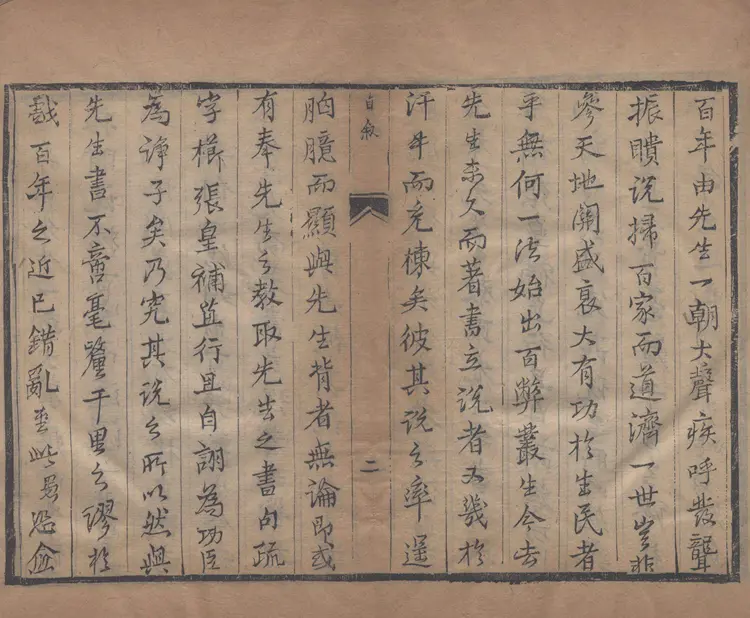 百年由先生一朝大聲疾呼發聾
振聵說掃百家而道濟一世豈非
參天地關盛衰大有功於生民者
乎無何一法始出百弊叢生今去
先生未久而著書立說者又幾於
汗牛而充棟矣彼其說之率逞
自敘
二
胸臆而顯與先生背者無論即或
有奉先生之教取先生之書句疏
字櫛張皇補苴行且自詡為功臣
為諍子矣乃究其說之所以然與
先生書不啻毫釐千里之謬於
戲百年之近已錯亂至此曷怪僉